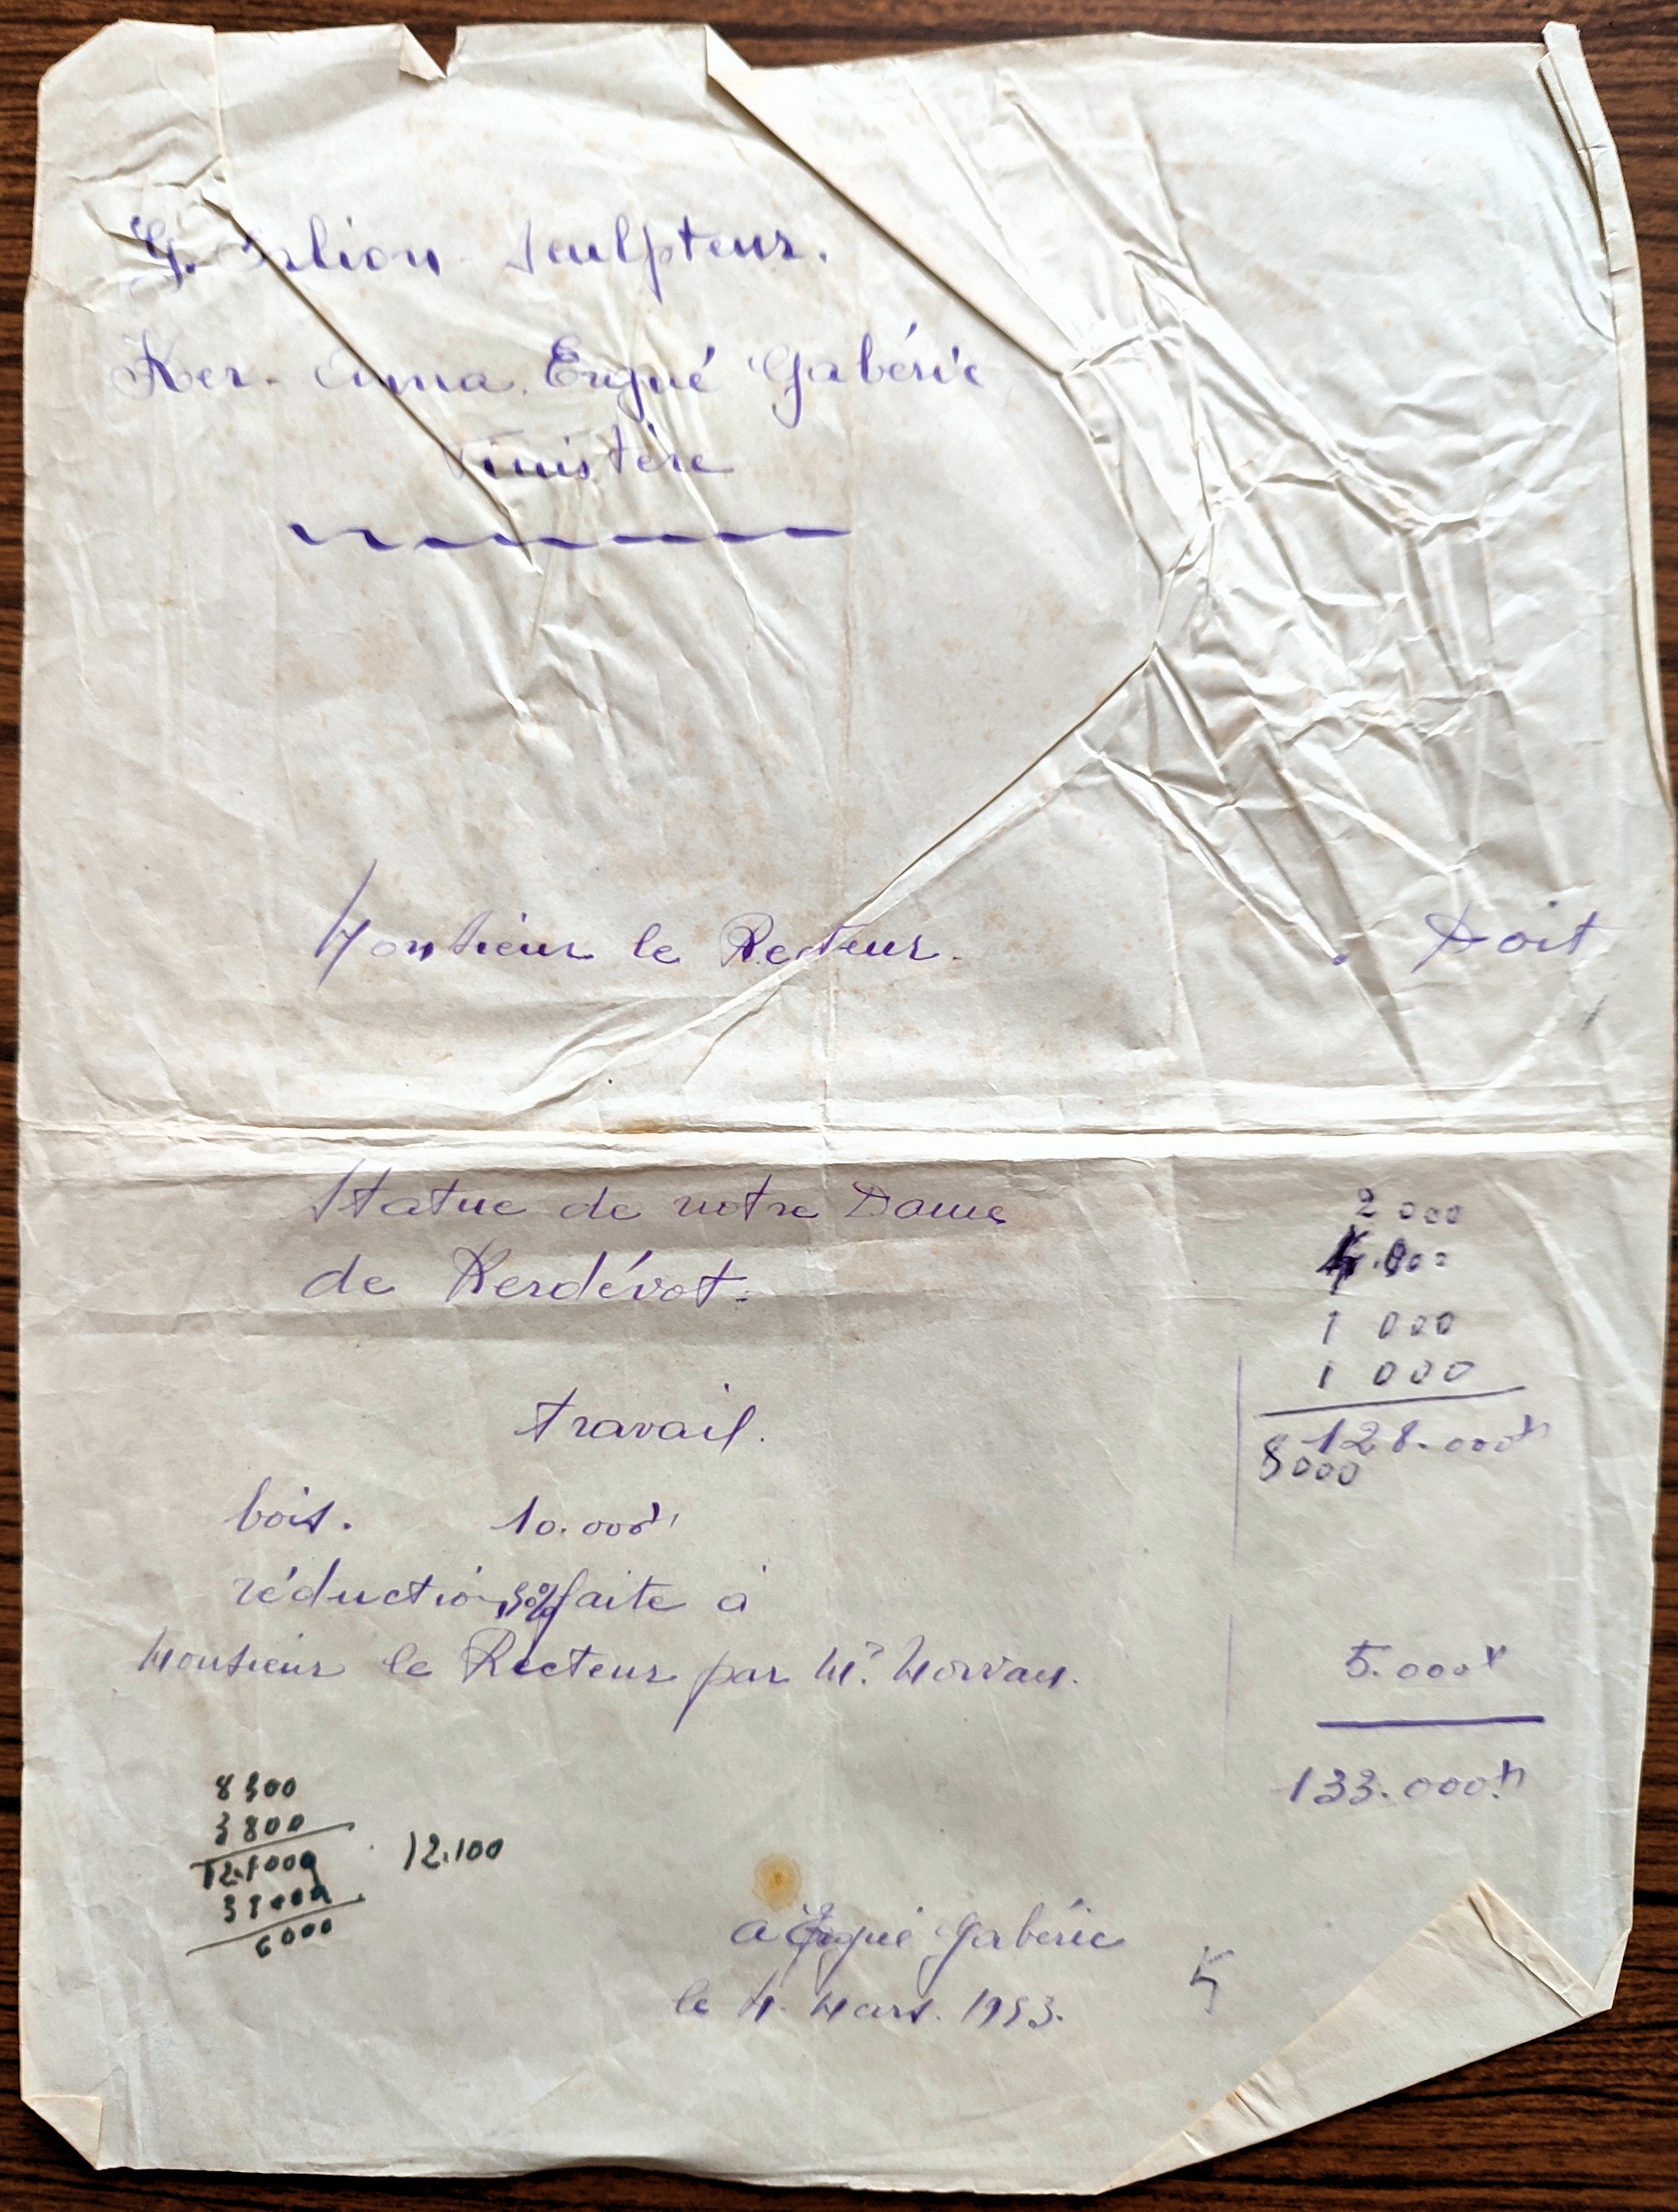 G. sculpteur.
Ker- Anna. Ergué Gabéric
Finistère
Monsieur le Recteur. Doit
Statue de notre Dame
de Kerdévot.
2 000
1 000
1 000
travail. 128.000
8000
bois. 10.000
réduction faite à
Monsieur le Recteur par Mr. Morvan. 5.000
133.000
8300
3800
12.100
6000
a Ergué Gabéric
le 4. Mars. 1953.
5